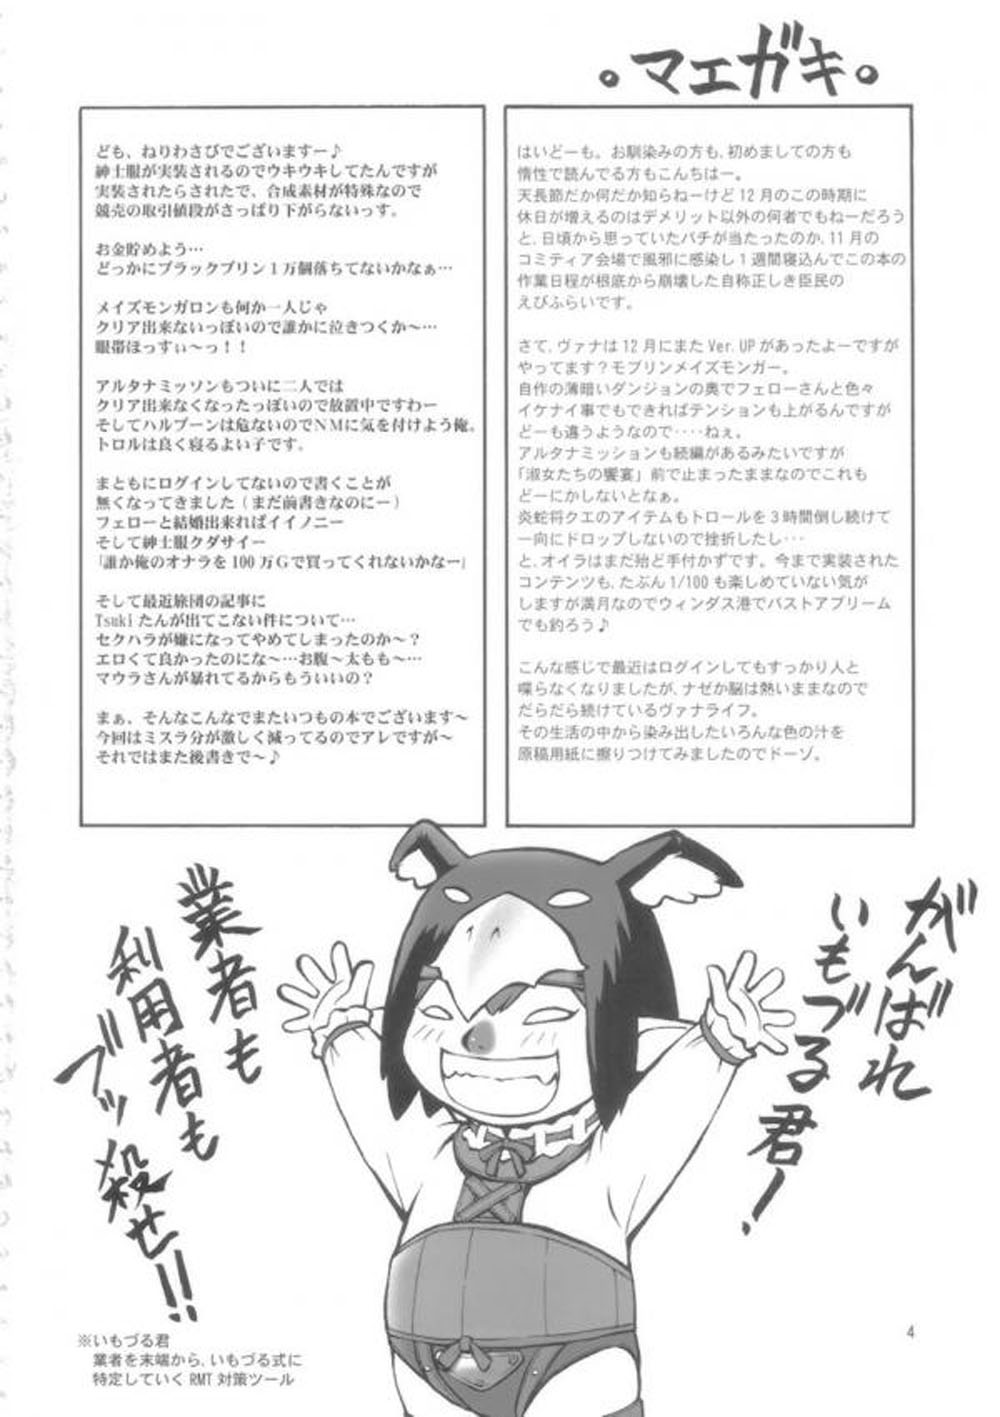 。マエガキ。
はいどーも。お馴染みの方も、初めましての方も
惰性で読んでる方もこんちはー。
天長節だか何だか知らねーけど12月のこの時期に
休日が増えるのはデメリット以外の何者でもねーだろう
と、日頃から思っていたバチが当たったのか、11月の
コミティア会場で風邪に感染し1週間寝込んでこの本の
作業日程が根底から崩壊した自称正しき臣民の
えびふらいです。
さて、ヴァナは12月にまたVer.UPがあったよーですが
やってます？モブリンメイズモンガー。
自作の薄暗いダンジョンの奥でフェローさんと色々
イケナイ事でもできればテンションも上がるんですが
どーも違うようなので‥‥ねぇ。
アルタナミッションも続編があるみたいですが
「淑女たちの饗宴」前で止まったままなのでこれも
どーにかしないとなぁ。
炎蛇将クエのアイテムもトロールを3時間倒し続けて
一向にドロップしないので挫折したし‥‥
と、オイラはまだ殆ど手付かずです。今まで実装された
コンテンツも、たぶん1/100も楽しめていない気が
しますが満月なのでウィンダス港でバストアブリーム
でも釣ろう♪
こんな感じで最近はログインしてもすっかり人と
喋らなくなりましたが、ナゼか脳は熱いままなので
だらだら続けているヴァナライフ。
その生活の中から染み出したいろんな色の汁を
原稿用紙に擦りつけてみましたのでドーゾ。
ども、ねりわさびでございますー♪
紳士服が実装されるのでウキウキしてたんですが
実装されたらされたで、合成素材が特殊なので
競売の取引値段がさっぱり下がらないっす。
お金貯めよう…
どっかにブラックプリン1万個落ちてないかなぁ…
メイズモンガロンも何か一人じゃ
クリア出来ないっぽいので誰かに泣きつくか～…
眼帯ほっすぃ～っ！！
アルタナミッソンもついに二人では
クリア出来なくなったっぽいので放置中ですわー
そしてハルブーンは危ないのでNMに気を付けよう俺。
トロルは良く寝るよい子です。
まともにログインしてないので書くことが
無くなってきました（まだ前書きなのにー）
フェローと結婚出来ればイイノニー
そして紳士服クダサイー
「誰か俺のオナラを100万Gで買ってくれないかなー」
そして最近旅団の記事に
Tsukiたんが出てこない件について…
セクハラが嫌になってやめてしまったのか～？
エロくて良かったのにな～…お腹～太もも～…
マウラさんが暴れてるからもういいの？
まぁ、そんなこんなでまたいつもの本でございます～
今回はミスラ分が激しく減ってるのでアレですが～
それではまた後書きで～♪
がんばれ
いもづる君！
業者も
利用者も
ブッ殺せ!!
※いもづる君
業者を末端から、いもづる式に
特定していくRMT対策ツール
4